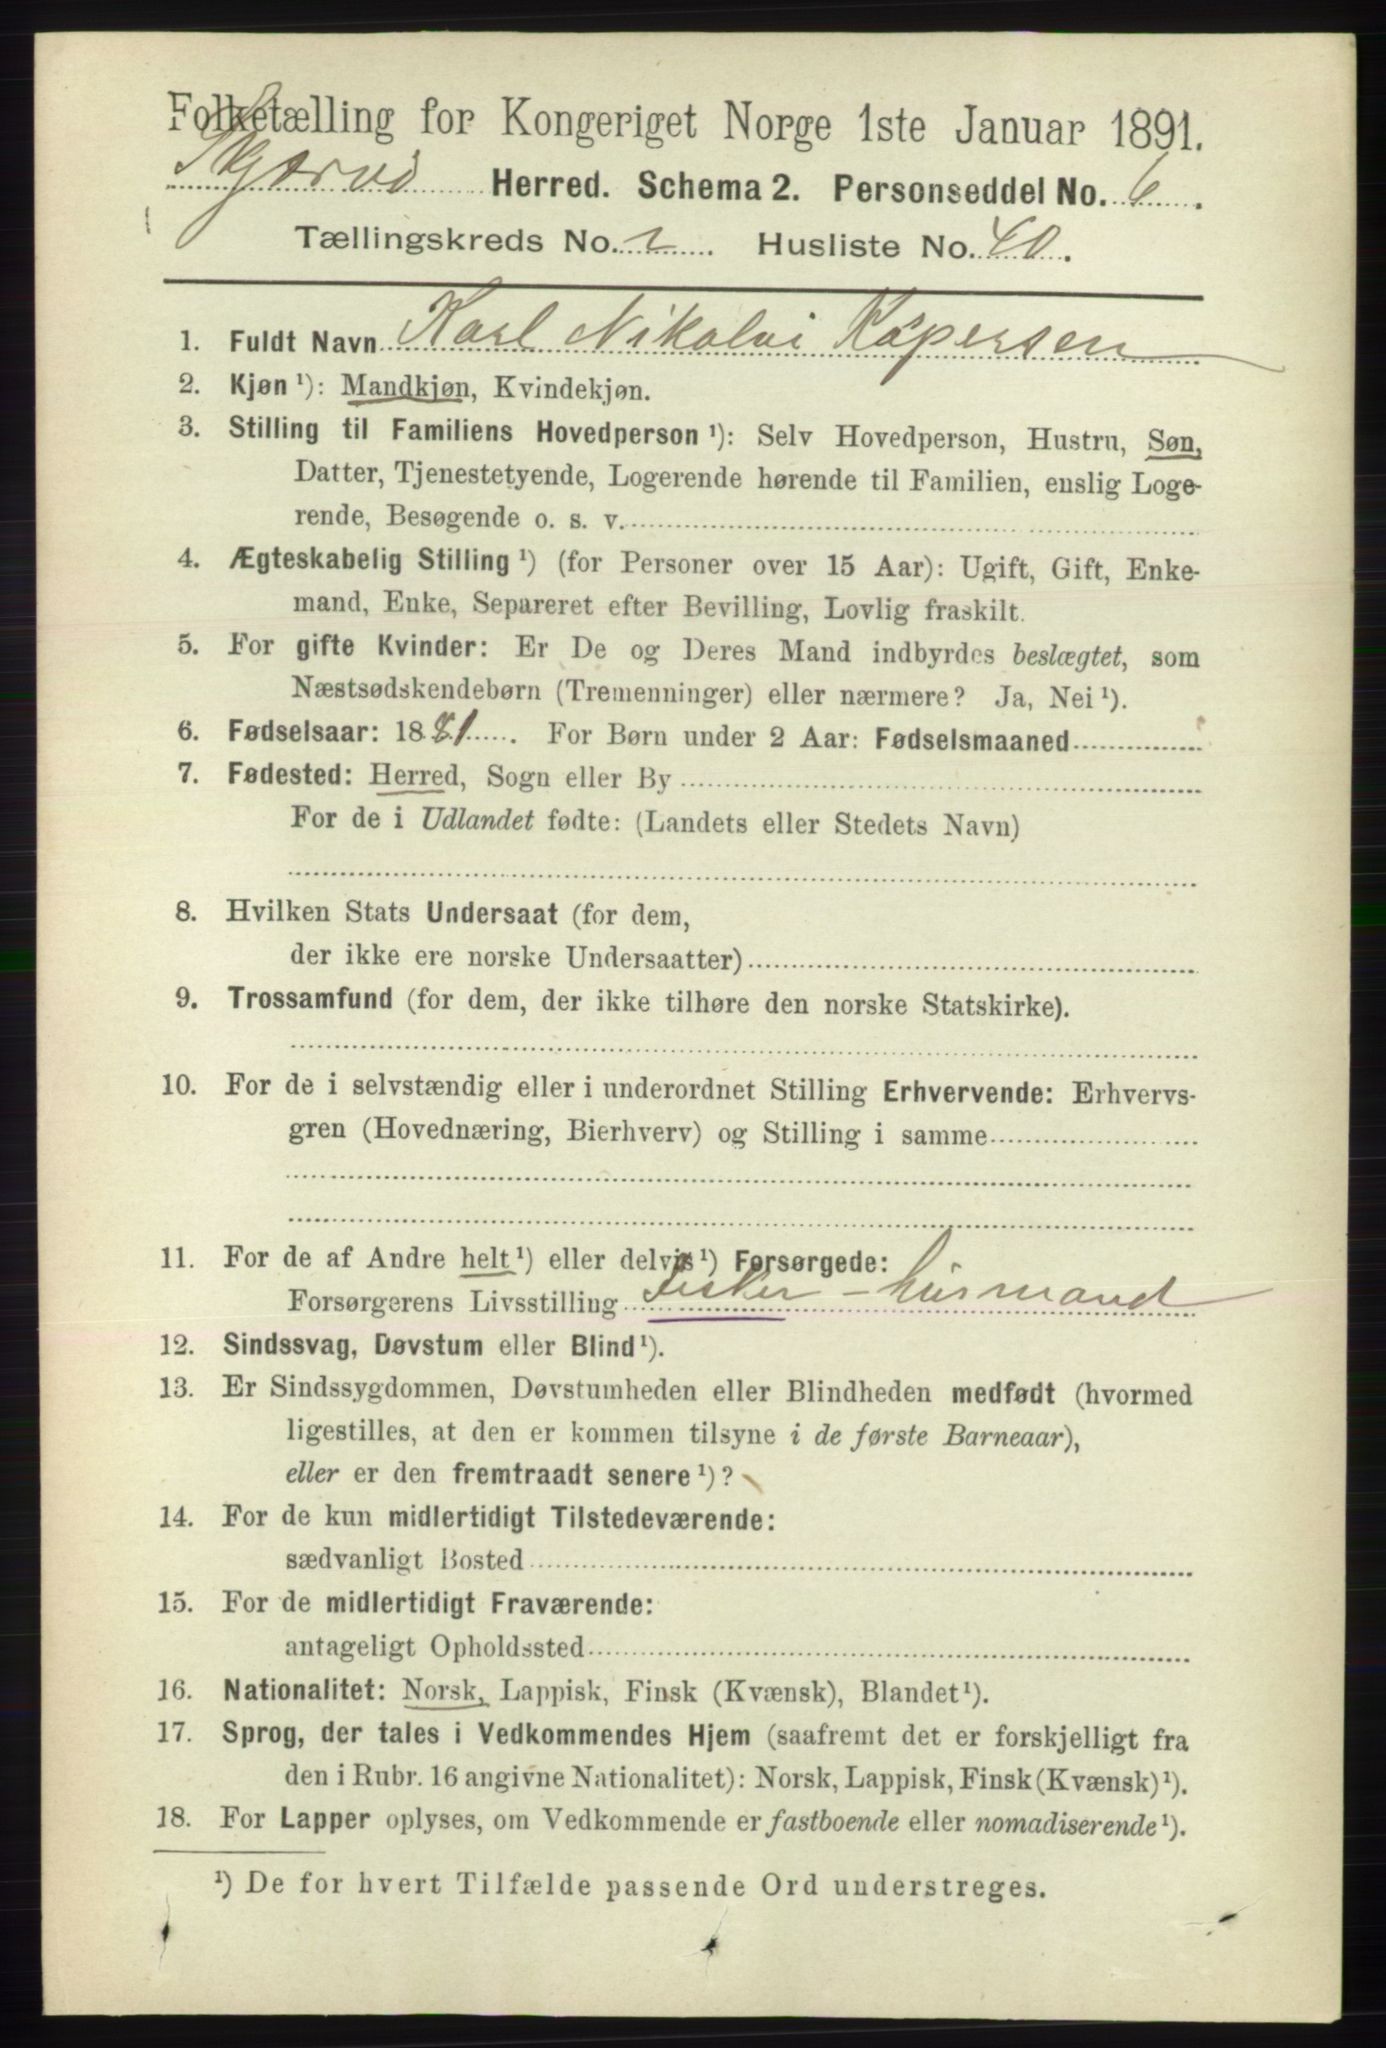 Folketælling for Kongeriget Norge 1ste Januar 1891.
Skjervø Herred. Schema 2. Personseddel No. 6.
Tællingskreds No. 2. Husliste No. 40.
1. Fuldt Navn Karl Nikolai Kåpersen
2. Kjøn ¹): Mandkjøn, Kvindekjøn.
3. Stilling til Familiens Hovedperson ¹): Selv Hovedperson, Hustru, Søn,
Datter, Tjenestetyende, Logerende hørende til Familien, enslig Loge-
rende, Besøgende o. s. v.
4. Ægteskabelig Stilling ¹) (for Personer over 15 Aar): Ugift, Gift, Enke-
mand, Enke, Separeret efter Bevilling, Lovlig fraskilt.
5. For gifte Kvinder: Er De og Deres Mand indbyrdes beslægtet, som
Næstsødskendebørn (Tremenninger) eller nærmere? Ja, Nei ¹).
6. Fødselsaar: 1881. For Børn under 2 Aar: Fødselsmaaned
7. Fødested: Herred, Sogn eller By
For de i Udlandet fødte: (Landets eller Stedets Navn)
8. Hvilken Stats Undersaat (for dem,
der ikke ere norske Undersaatter)
9. Trossamfund (for dem, der ikke tilhøre den norske Statskirke).
10. For de i selvstændig eller i underordnet Stilling Erhvervende: Erhvervs-
gren (Hovednæring, Bierhverv) og Stilling i samme
11. For de af Andre helt ¹) eller delvis ¹) Forsørgede:
Forsørgerens Livsstilling Fisker - husmand
12. Sindssvag, Døvstum eller Blind ¹).
13. Er Sindssygdommen, Døvstumheden eller Blindheden medfødt (hvormed
ligestilles, at den er kommen tilsyne i de første Barneaar),
eller er den fremtraadt senere ¹)?
14. For de kun midlertidigt Tilstedeværende:
sædvanligt Bosted
15. For de midlertidigt Fraværende:
antageligt Opholdssted
16. Nationalitet: Norsk, Lappisk, Finsk (Kvænsk), Blandet ¹).
17. Sprog, der tales i Vedkommendes Hjem (saafremt det er forskjelligt fra
den i Rubr. 16 angivne Nationalitet): Norsk, Lappisk, Finsk (Kvænsk) ¹).
18. For Lapper oplyses, om Vedkommende er fastboende eller nomadiserende ¹).
¹) De for hvert Tilfælde passende Ord understreges.